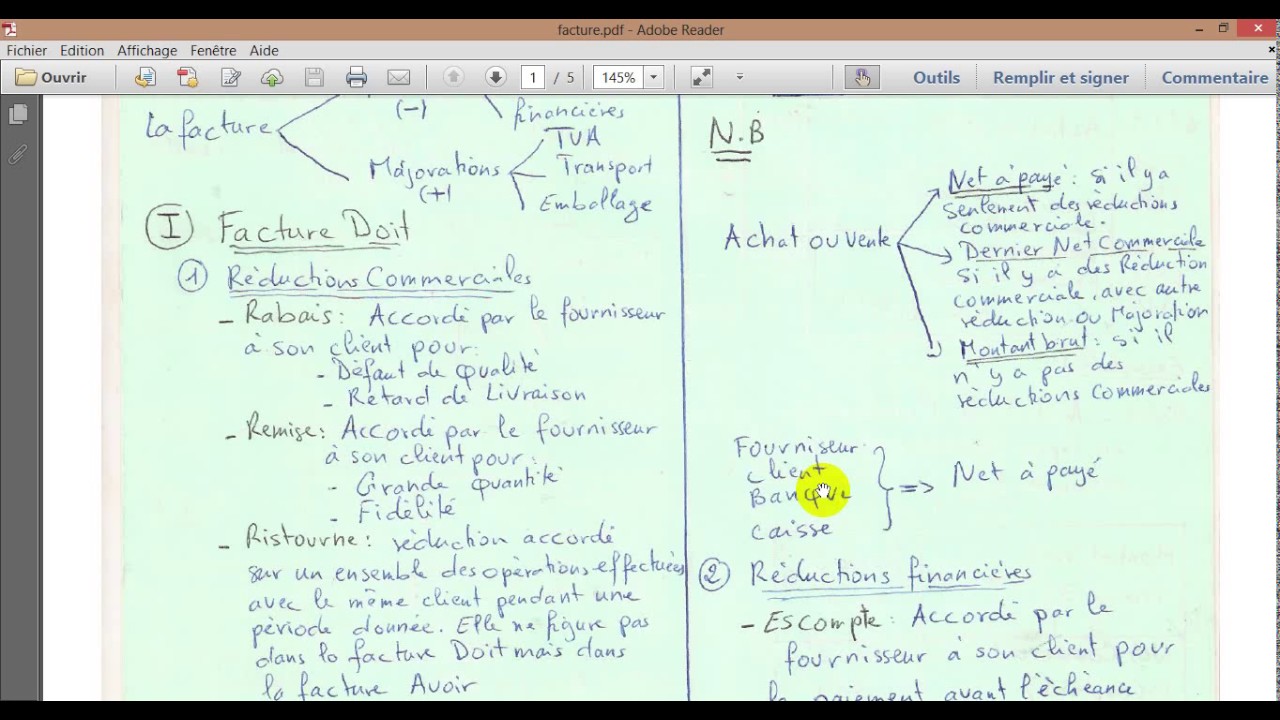 facture.pdf - Adobe Reader
Fichier Edition Affichage Fenêtre Aide
Ouvrir 1 / 5 145% Outils Remplir et signer Commentaire
financières
(-)
la facture
TVA
Majorations
Transport
(+)
Emballage
I Facture Doit
1 Réductions Commerciales
- Rabais : Accordé par le fournisseur
à son client pour :
- Défaut de qualité
- Retard de Livraison
- Remise : Accordé par le fournisseur
à son client pour :
- Grande quantité
- Fidélité
- Ristourne : réduction accordé
sur un ensemble des opérations effectuées
avec le même client pendant une
période donnée. Elle ne figure pas
dans la facture Doit mais dans
la facture Avoir
N.B
Achat ou Vente
Net à payé : si il y a
seulement des réductions
commerciale.
Dernier Net Commerciale
si il y a des Réduction
commerciale, avec autre
réduction ou Majoration
Montant brut : si il
n'y a pas des
réductions commerciales
Fourniseur
client
Banque
caisse
=> Net à payé
2 Réductions financières
- Escompte : Accordé par le
fournisseur à son client pour
le paiement avant l'échéance